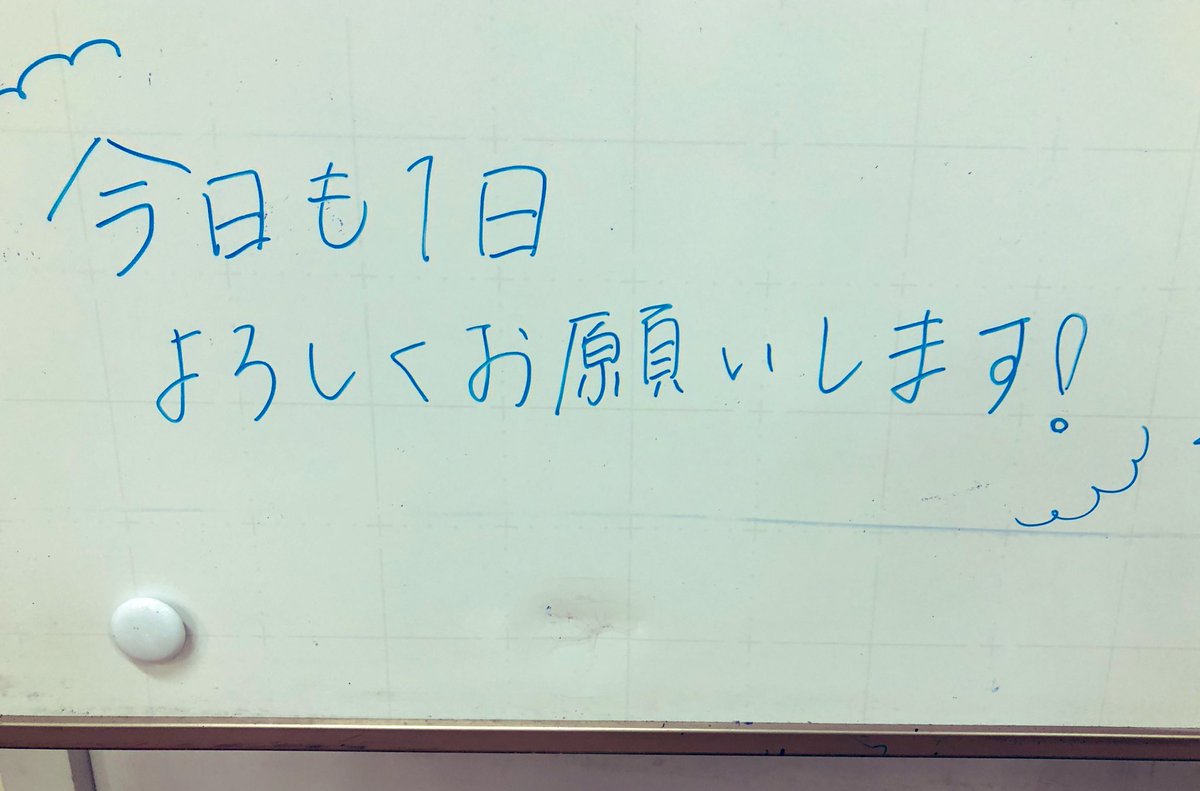 今日も1日
よろしくお願いします!